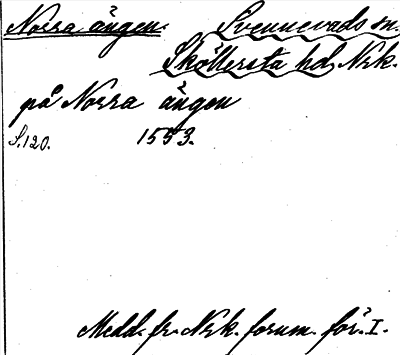 Norra ängen. Svennevads sn.
Sköllersta hd, Nrk.
på Norra ängen
S. 120. 1553.
Medd. fr. Nrk. fornm. för. I.